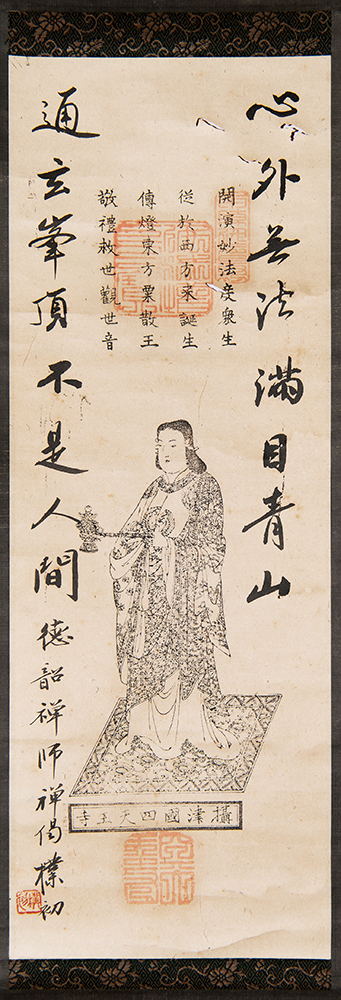 心外無法滿目青山
通玄峯頂不是人間
德韶禅師禅偈樸初
開演妙法度衆生
從於西方來誕生
傳燈東方粟散王
敬禮救世觀世音
攝津國四天王寺